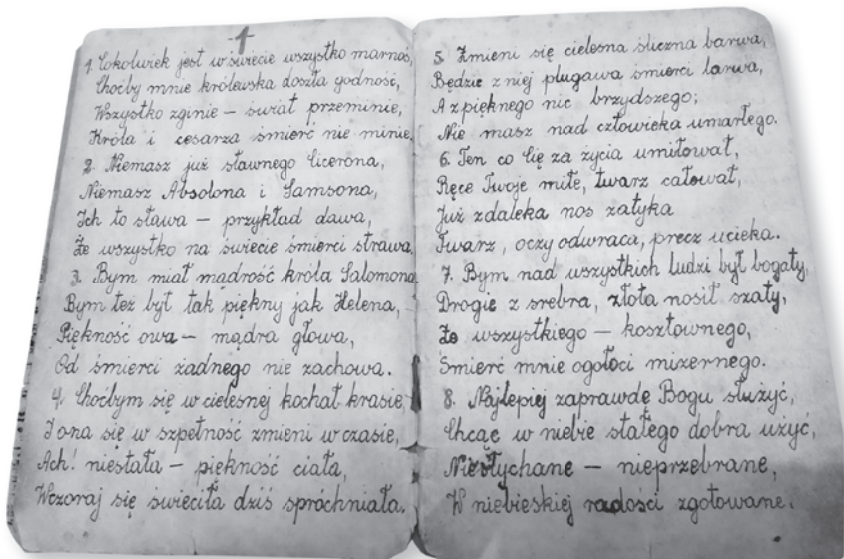 1
1. Cokolwiek jest w świecie wszystko marnoś,
Choćby mnie królewska doszła godność,
Wszystko zginie – świat przeminie,
Króla i cesarza śmierć nie minie.
2. Niemasz już sławnego Cicerona,
Niemasz Absolona i Samsona,
Ich to sława – przykład dawa,
Że wszystko na świecie śmierci strawa.
3. Bym miał mądrość króla Salomona
Bym też był tak piękny jak Helena,
Piękność owa – mądra głowa,
Od śmierci żadnego nie zachowa.
4. Choćbym się w cielesnej kochał krasie
I ona się w szpetność zmieni w czasie,
Ach! niestała – piękność ciała,
Wczoraj się świeciła dziś spróchniała.
5. Zmieni się cielesna śliczna barwa,
Będzie z niej plugawa śmierci larwa,
A z pięknego nic brzydszego;
Nie masz nad człowieka umarłego.
6. Ten co Cię za życia umiłował,
Ręce Twoje miłe, twarz całował,
Już zdaleka nos zatyka
Twarz, oczy odwraca, precz ucieka.
7. Bym nad wszystkich ludzi był bogaty,
Drogie z srebra, złota nosił szaty,
Ze wszystkiego – kosztownego,
Śmierć mnie ogołoci mizernego.
8. Najlepiej zaprawdę Bogu służyć,
Chcąc w niebie stałego dobra użyć,
Niesłychane – nieprzebrane,
W niebieskiej radości zgotowane.